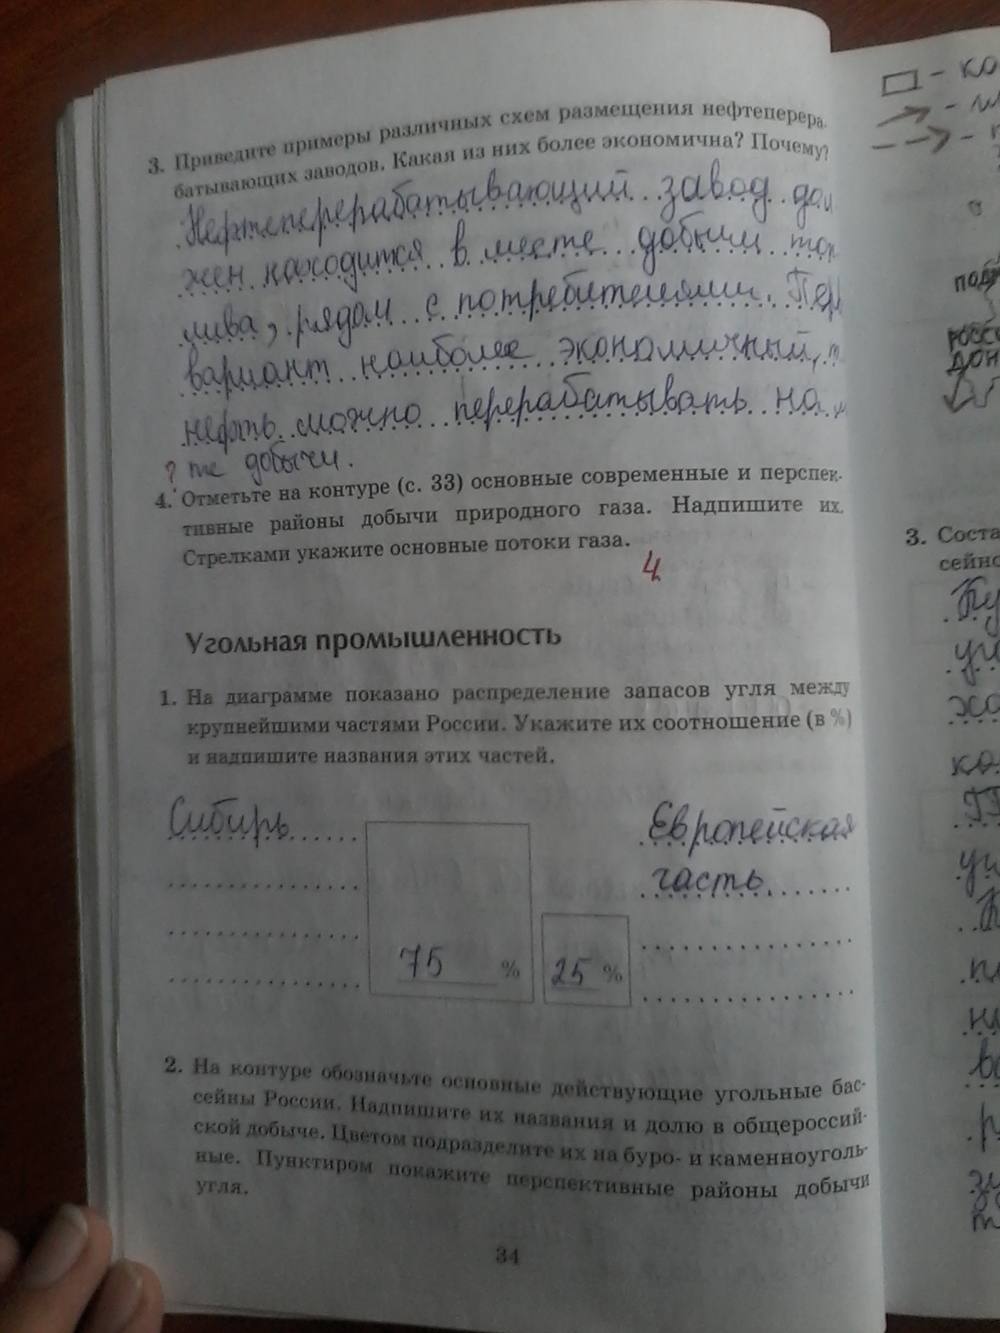 3. Приведите примеры различных схем размещения нефтеперера-
батывающих заводов. Какая из них более экономична? Почему?
Нефтеперерабатывающий завод дол
жен находится в месте добычи топ
лива, рядом с потребителями. Пер
вариант наиболее экономичный, т
нефть можно перерабатывать на
? те добычи.
4. Отметьте на контуре (с. 33) основные современные и перспек-
тивные районы добычи природного газа. Надпишите их.
Стрелками укажите основные потоки газа.
4
Угольная промышленность
1. На диаграмме показано распределение запасов угля между
крупнейшими частями России. Укажите их соотношение (в %)
и надпишите названия этих частей.
Сибирь
Европейская
часть
75 %
25 %
2. На контуре обозначьте основные действующие угольные бас-
сейны России. Надпишите их названия и долю в общероссий-
ской добыче. Цветом подразделите их на буро- и каменноуголь-
ные. Пунктиром покажите перспективные районы добычи
угля.
34
- ко
под
РОСС
ДОН
3. Соста
сейно